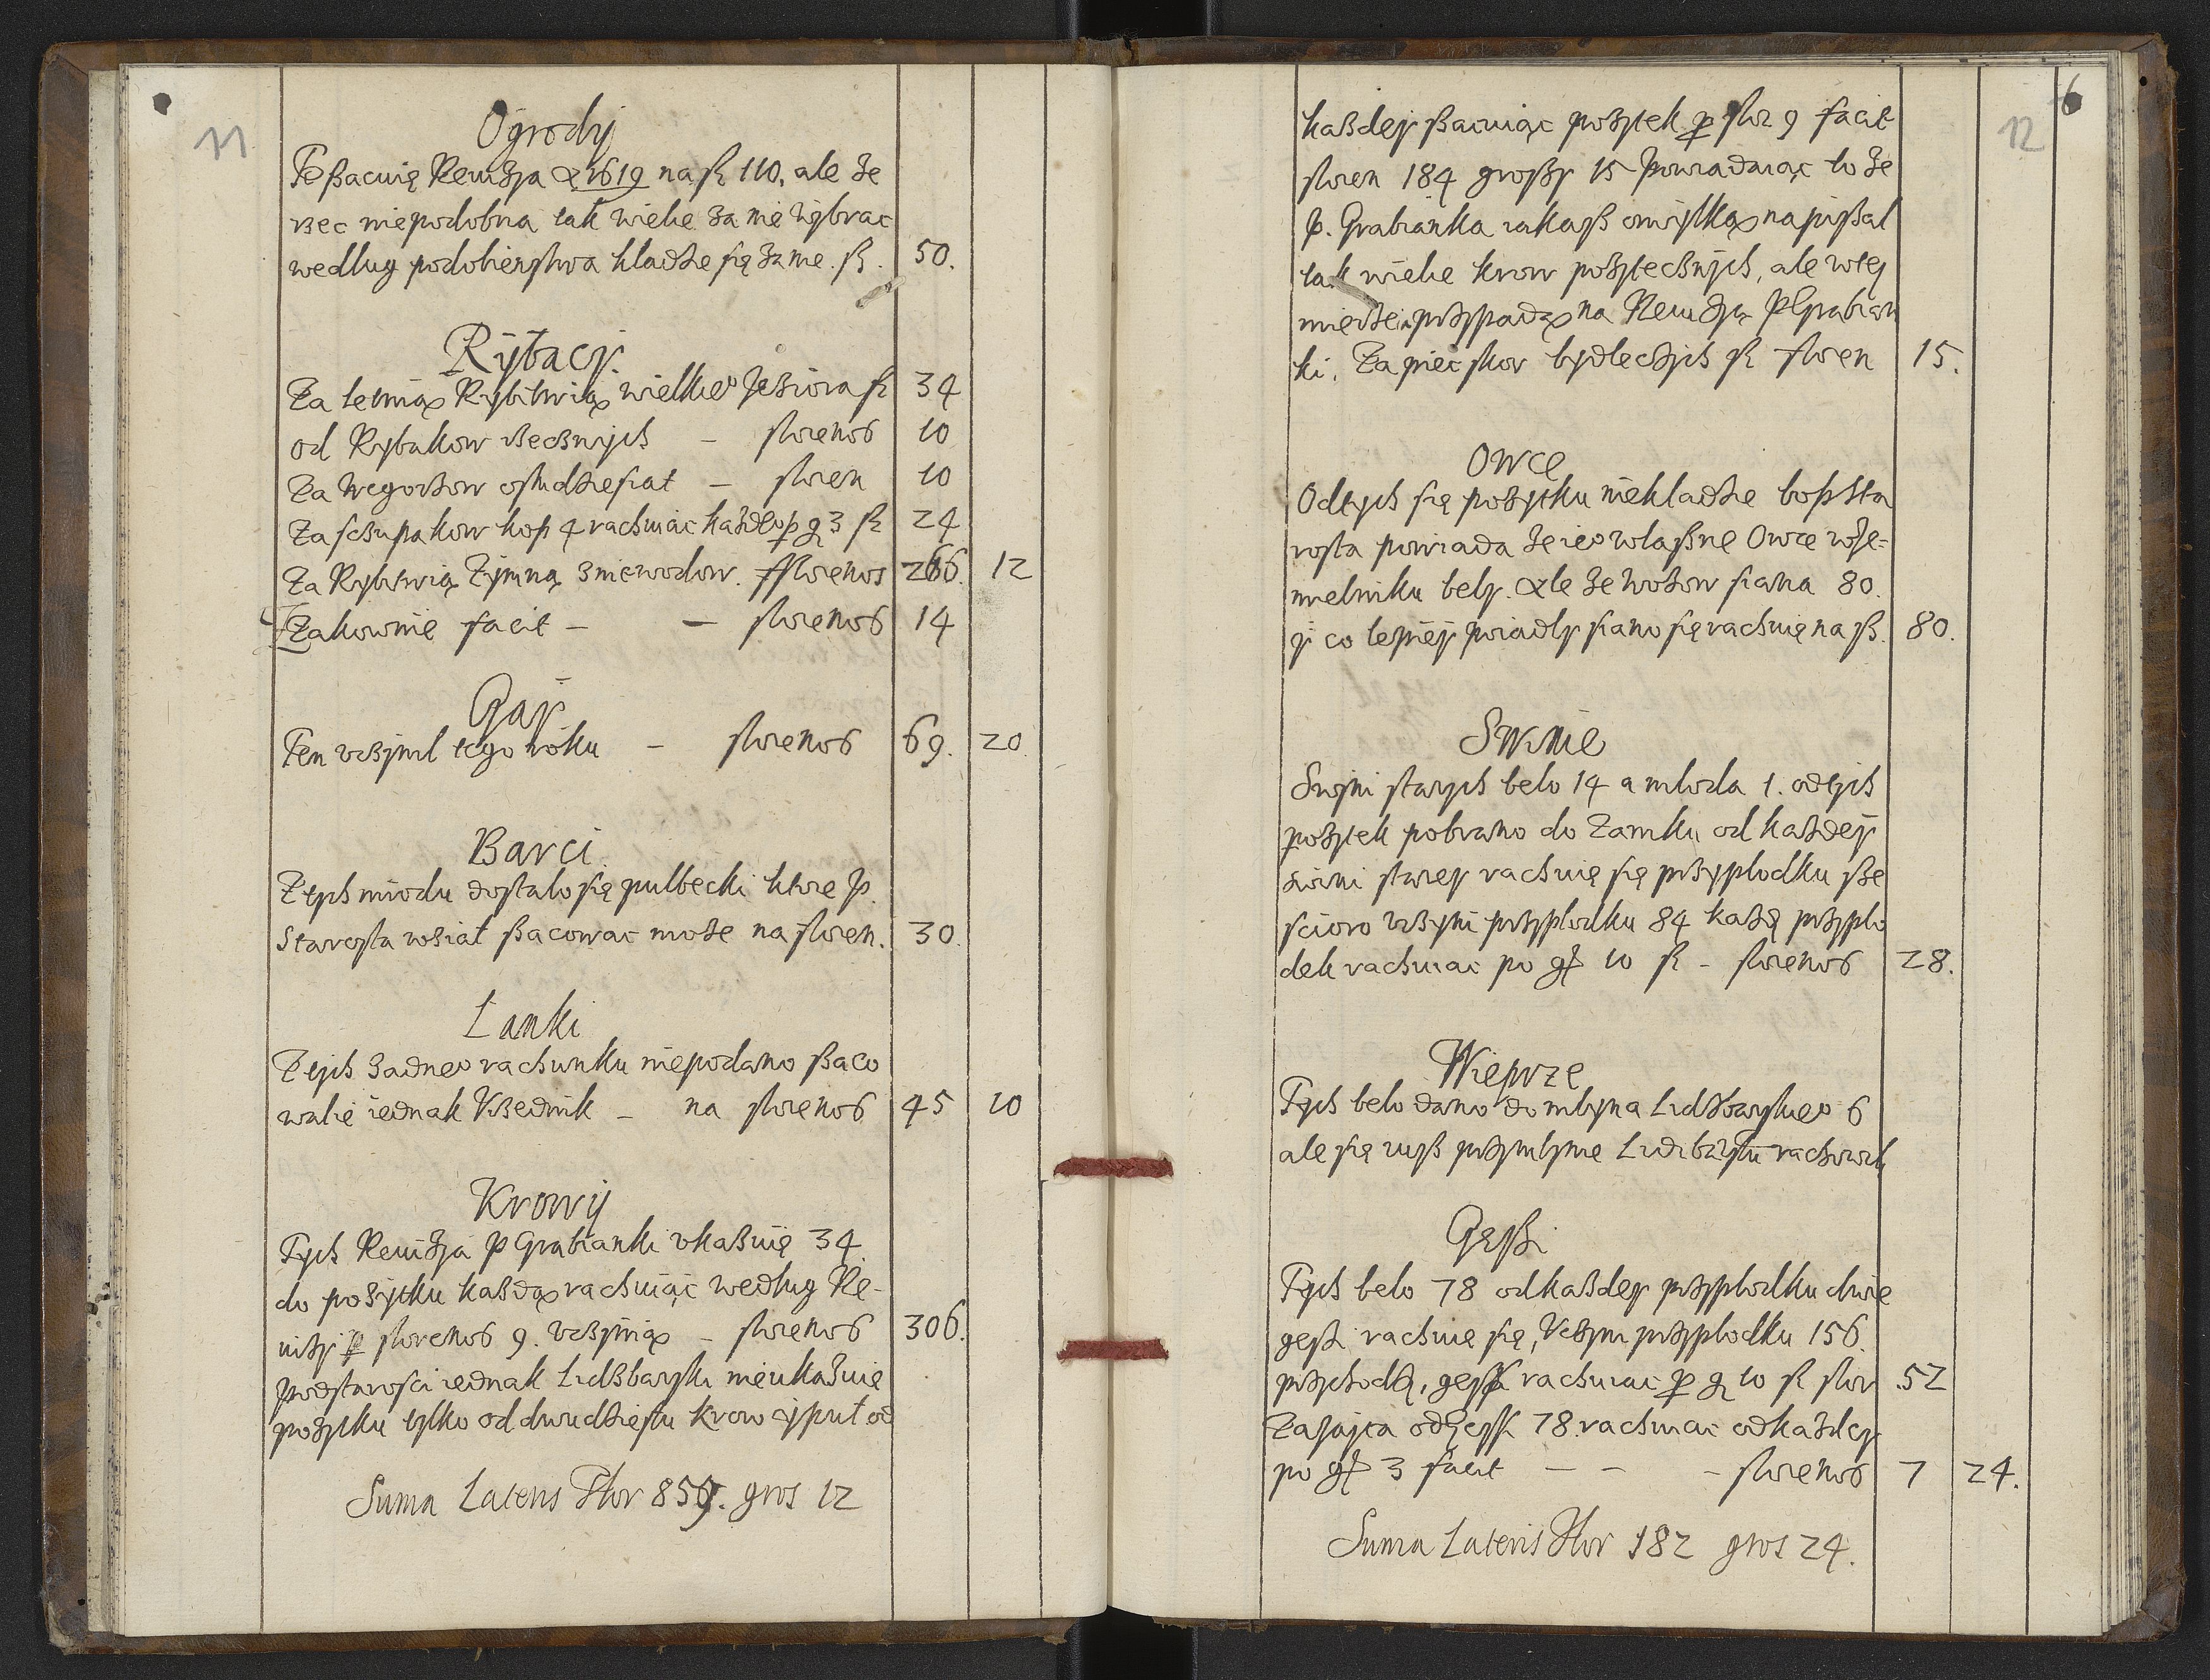 11
Ogrody
Te ßacuię Rewizya A. 1619 na fl 110, ale że
rzec niepodobna tak wiele za nie wybrac
wedlug podobienstwa kladzie się za nie. fl. 50.
Rybacy.
Za letnią Rybitwią wielkieo Jeziora fl 34
od Rybakow rzecznych – florenos 10
Za Wegorzow osmdziesiat – floren 10
Za sczupakow kop 4 rachuiąc każdeo p g 3 fl 24
Za Rybitwią Zymną z niewodow. fflorenos 266. 12
Żakownie facit – – florenos 14
Gay
Ten uczynil tego roku – florenos 69. 20
Barci.
Z tych miodu dostalo się pulbecki ktore P.
Starosta wziął ßacowac może na floren. 30.
Lanki
Z tych żadneo rachunku niepodano ßaco
walie iednak Vrzednik – na florenos 45 10
Krowy
Tych Rewizya P Grabianki ukazuię 34
do pożytku każdą rachuiąc wedlug Re-
wizy p florenos 9. uczynią – florenos 306.
Podstarosci iednak Lidzbarski nieukazuie
pożytku tylko od dwudziestu krow y pul od
Suma Lateris Flor 859. gros 12
12
6
każdey ßacuiąc pożytek p flor 9 facit
floren 184 großy 15 powiadaiąc to że
P. Grabianka iakąß omylką napisał
tak wiele krow pożytecznych, ale w tey
mierze przypada na Rewizyą P Grabian
ki. Za pięc skor bydlęczych fl floren 15.
Owce
Od tych się pożytku niekladzie bo P Sta
rosta powiada że ieo wlaßne Owce w Je=
mielniku bely. Ale że wozow siana 80.
y co lepiey poiadly siano się rachuię na fl. 80.
Swinie
Swyni starych belo 14 a mloda 1. od tych
pożytek pobrano do Zamku od każdey
swini starey rachuię się przyplodku sze
scioro uczyni przyplodku 84 każdy przyplo
dek rachuiac po gł 10 fl – florenos 28.
Wieprze
Tych belo dano do mlyna Lidzbarskieo 6
ale się iuß przy mlynie rachowaly
Gęßi
Tych belo 78 od każdey przyplodku dwie
gęsi rachuie się, Uczyni przyplodku 156.
przychodzi, gęsi rachuiac p g 10 fl flor 52
Za iayca od Gęsi 78 rachuiac od każdey
po gł 3 facit – – – florenos 7 24.
Suma Lateris Flor 182 gros 24.